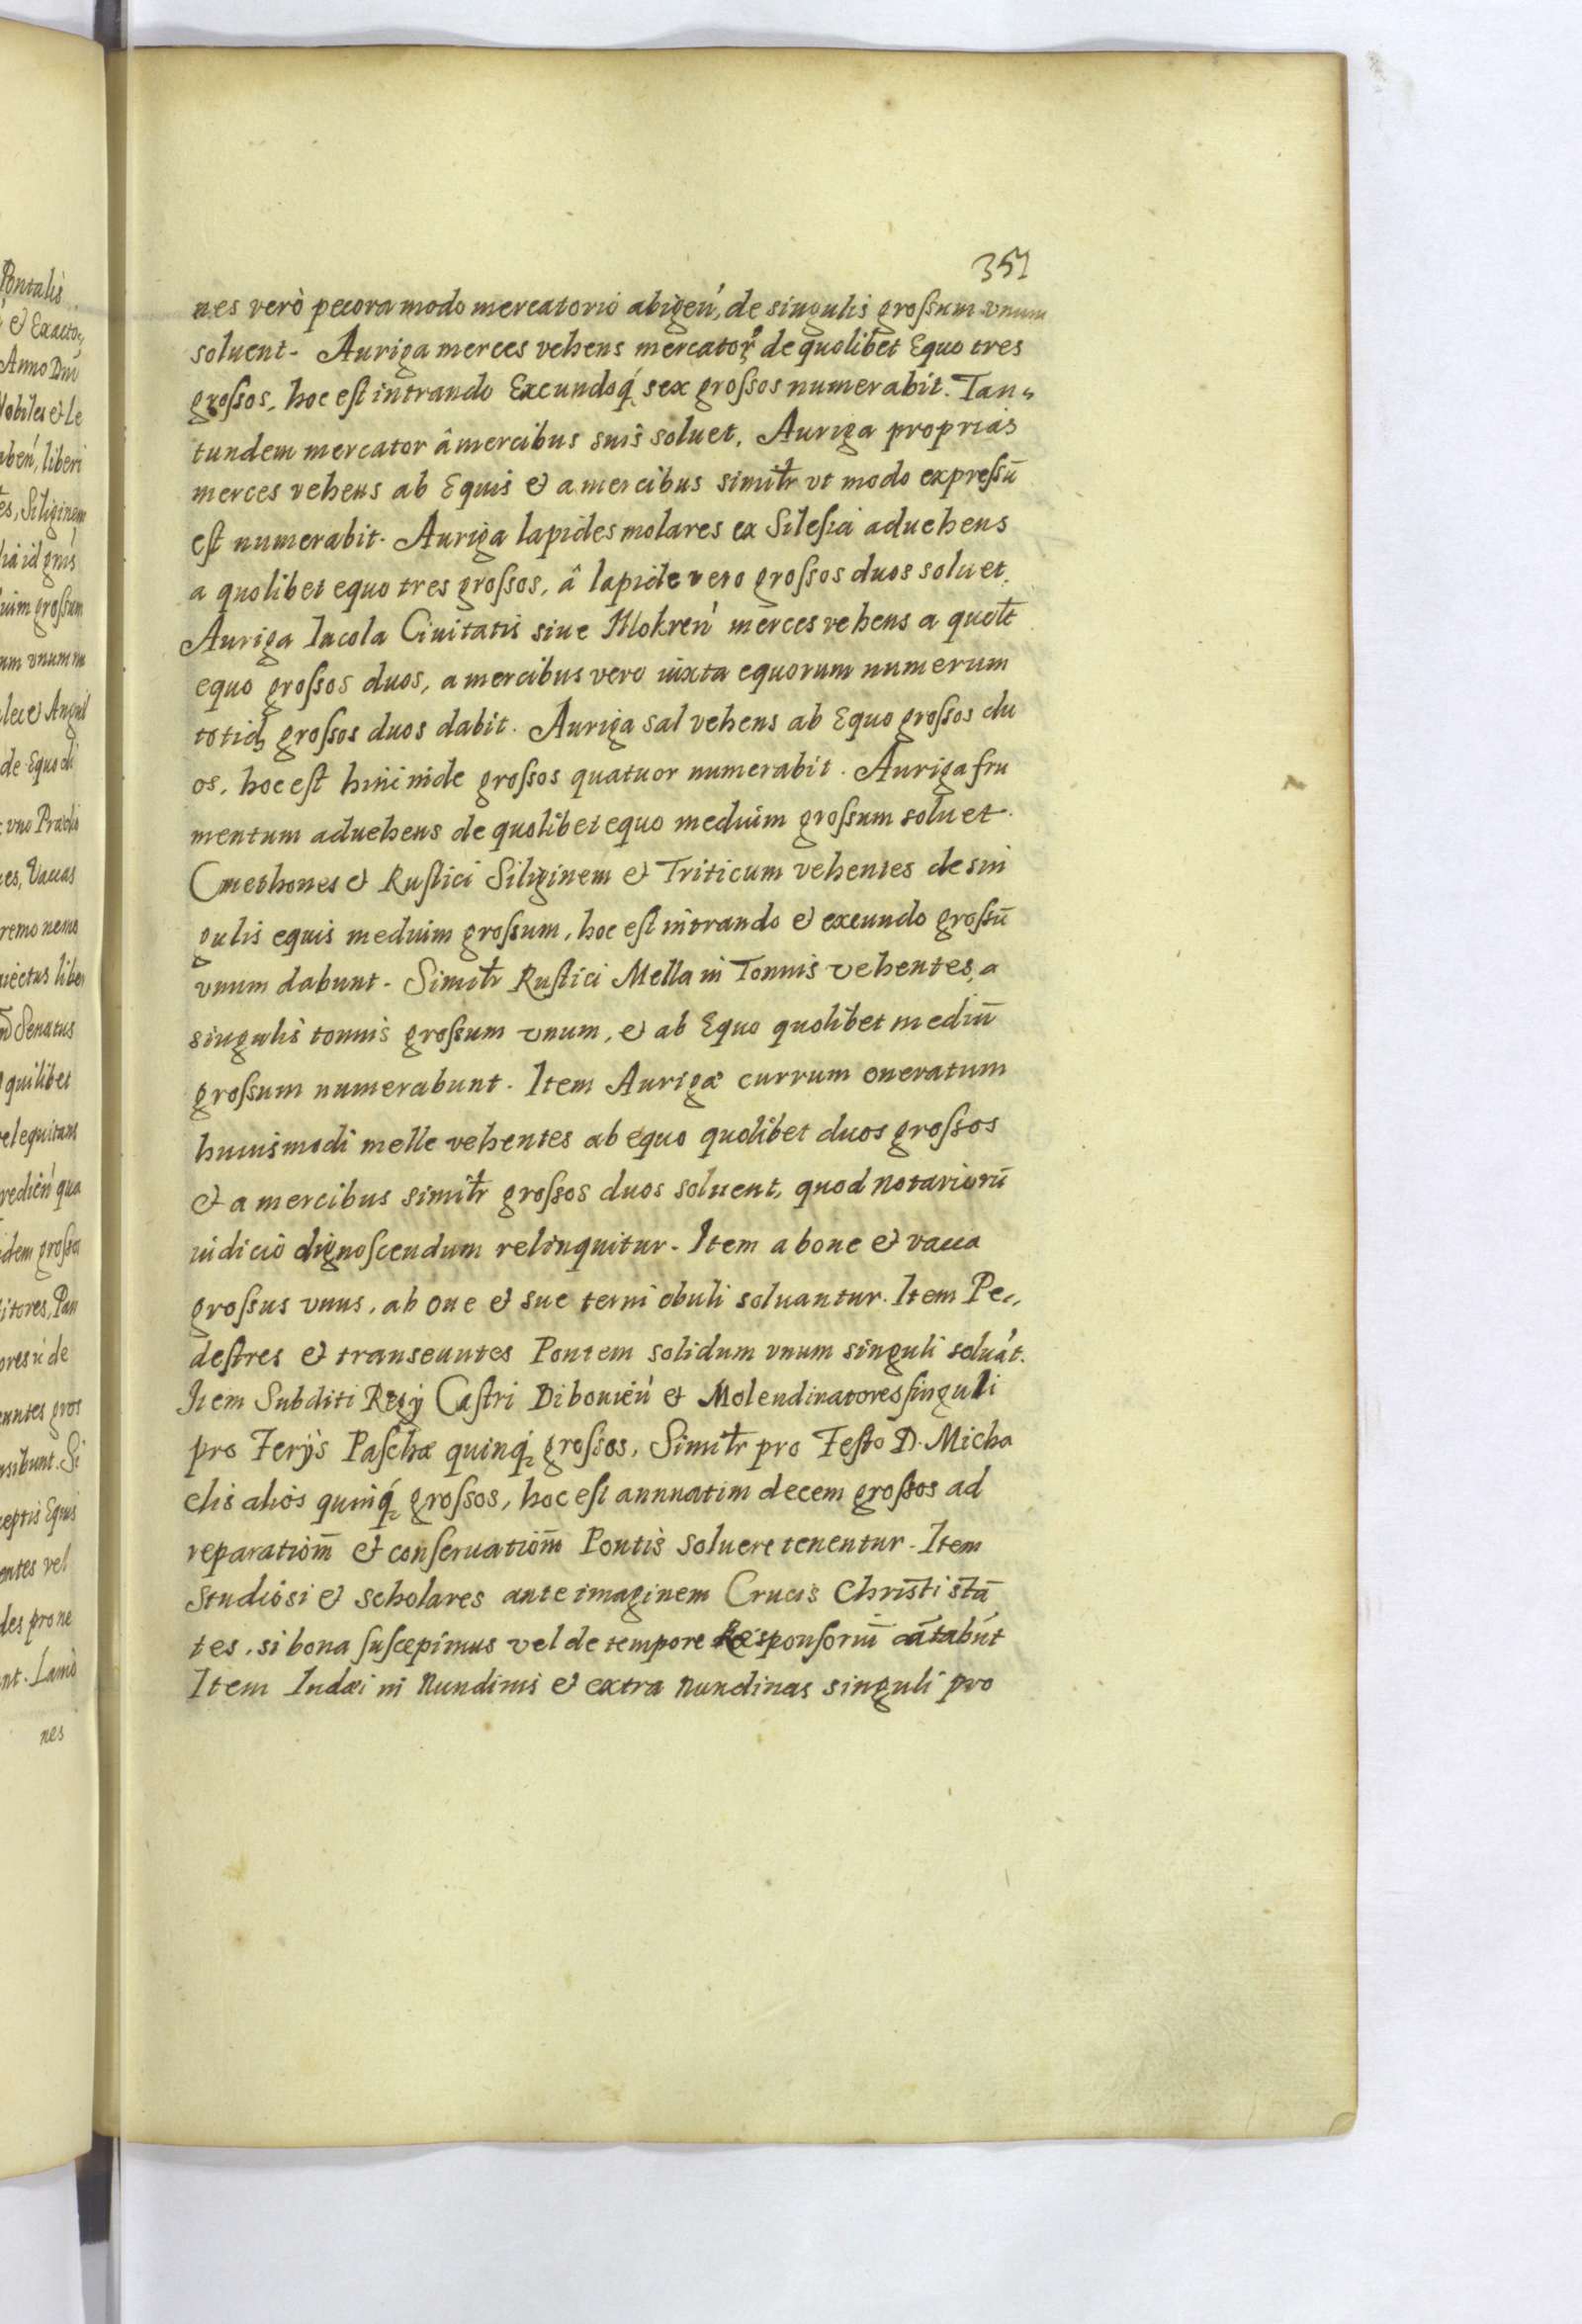 351
nes verò pecora modo mercatorio abigen̄, de singulis grossum vnum
soluent. Auriga merces vehens mercatorꝝ de quolibet Equo tres
grossos, hoc est intrando Exeundoq́ sex grossos numerabit. Tan„
tundem mercator â mercibus suis soluet. Auriga proprias
merces vehens ab Equis et a mercibus similr̄ vt modo expressū
est numerabit. Auriga lapides molares ex Silesia aduehens
a quolibet equo tres grossos, â lapide vero grossos duos soluet.
Auriga Iacola Ciuitatis siue Mokren̄ merces vehens a quolt̄
equo grossos duos, a mercibus vero iuxta equorum numerum
totidꝫ grossos duos dabit. Auriga sal vehens ab Equo grossos du
os, hoc est hinc inde grossos quatuor numerabit. Auriga fru
mentum aduehens de quolibet equo medium grossum soluet.
Cmethones et Rustici Siliginem et Triticum vehentes de sin
gulis equis medium grossum, hoc est intrando et exeundo grossū
vnum dabunt. Similr̄ Rustici Mella in Tonnis vehentes, a
singulis tonnis grossum vnum, et ab Equo quolibet mediū
grossum numerabunt. Item Aurigæ currum oneratum
huiusmodi melle vehentes ab equo quolibet duos grossos
et a mercibus similr̄ grossos duos soluent, quod notariorū
iudicio dignoscendum relinquitur. Item a boue et vacca
grossus vnus, ab oue et sue terni obuli soluantur. Item Pe„
destres et transeuntes Pontem solidum vnum singuli soluāt.
Item Subditi Regÿ Castri Dibouien̄ et Molendinatores singuli
pro Ferÿs Paschæ quinq́ grossos, Similr̄ pro Festo D. Micha
elis alios quinq́ grossos, hoc est annuatim decem grossos ad
reparatiom̄ et conseruatiom̄ Pontis soluere tenentur. Item
studiosi et scholares ante imaginem Crucis Christi stā
tes, si bona suscepimus vel de tempore Responsoriū cātabūt
Item Iudæi in Nundinis et extra nundinas singuli pro